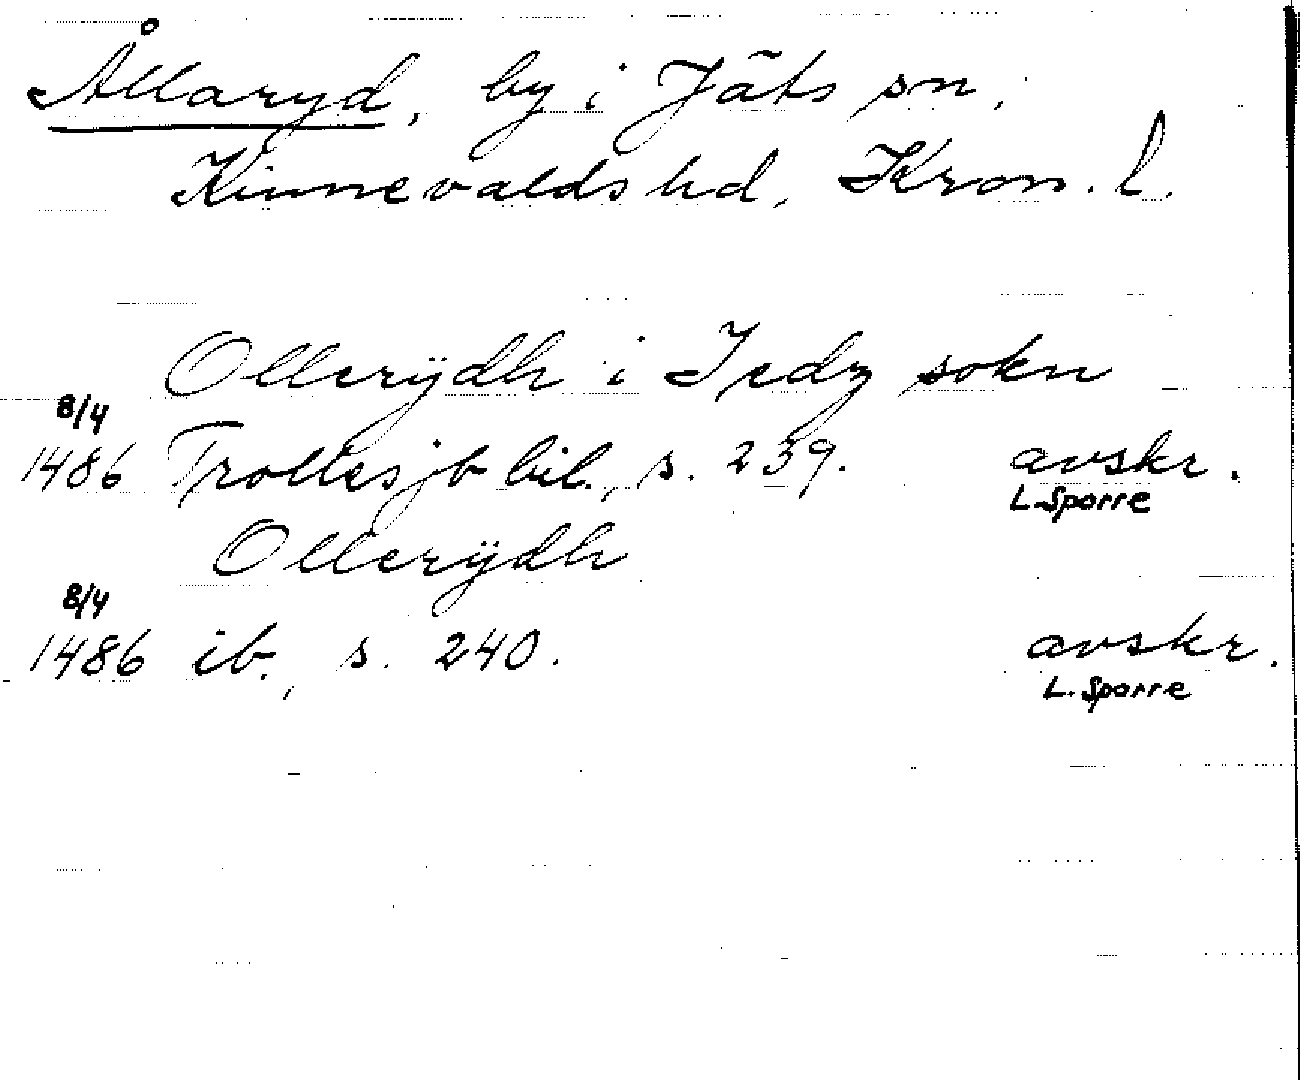 Ållaryd, by i Jäts sn,
Kinnevalds hd, Kron. l.
Ollerÿdh i Jedz sokn
8/4
1486 Trolles jb bil., s. 239. avskr.
L. Sparre
Ollerÿdh
8/4
1486 ib., s. 240. avskr.
L. Sparre